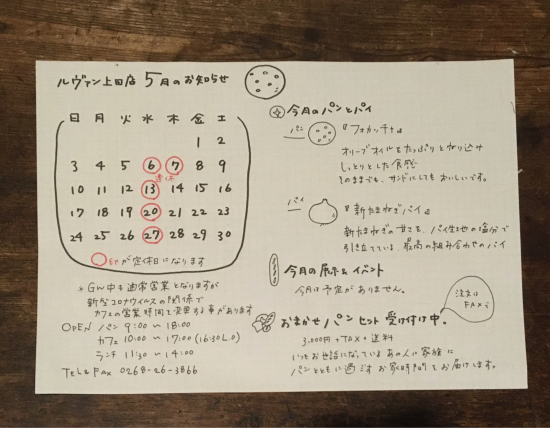 ルヴァン上田店 5月のお知らせ
日 月 火 水 木 金 土
1 2
3 4 5 6 7 8 9
連休
10 11 12 13 14 15 16
17 18 19 20 21 22 23
24 25 26 27 28 29 30
○印が定休日になります
*GW中も通常営業となりますが
新型コロナウイルスの関係で
カフェの営業時間を変更する事があります
OPEN パン 9:00〜18:00
カフェ 10:00〜17:00(16:30L.O)
ランチ 11:30〜14:00
Tel&Fax 0268-26-3866
今月のパンとパイ
パン
『フォカッチャ』
オリーブオイルをたっぷりとねり込み
しっとりとした食感
そのままでも、サンドにしてもおいしいです。
パイ
『新たまねぎパイ』
新たまねぎの甘さを、パイ生地の塩分で
引き立てている、最高の組み合わせのパイ
今月の展示&イベント
今月は予定がありません。
注文は
FAXで
おまかせパンセット受け付け中。
3,000円+TAX+送料
いつもお世話になっているあの人に家族に
パンとともに過ごすお家時間をお届けします。